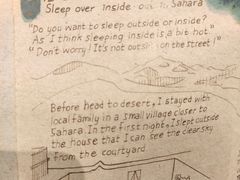 Sleep over inside out Sahara
"Do you want to sleep outside or inside?
As I think sleeping inside is a bit hot."
"Don't worry! It's not outside on the street!"
Before head to desert, I stayed with
local family in a small village closer to
Sahara. In the first night, I slept outside
the house that I can see the clear sky
from the courtyard.